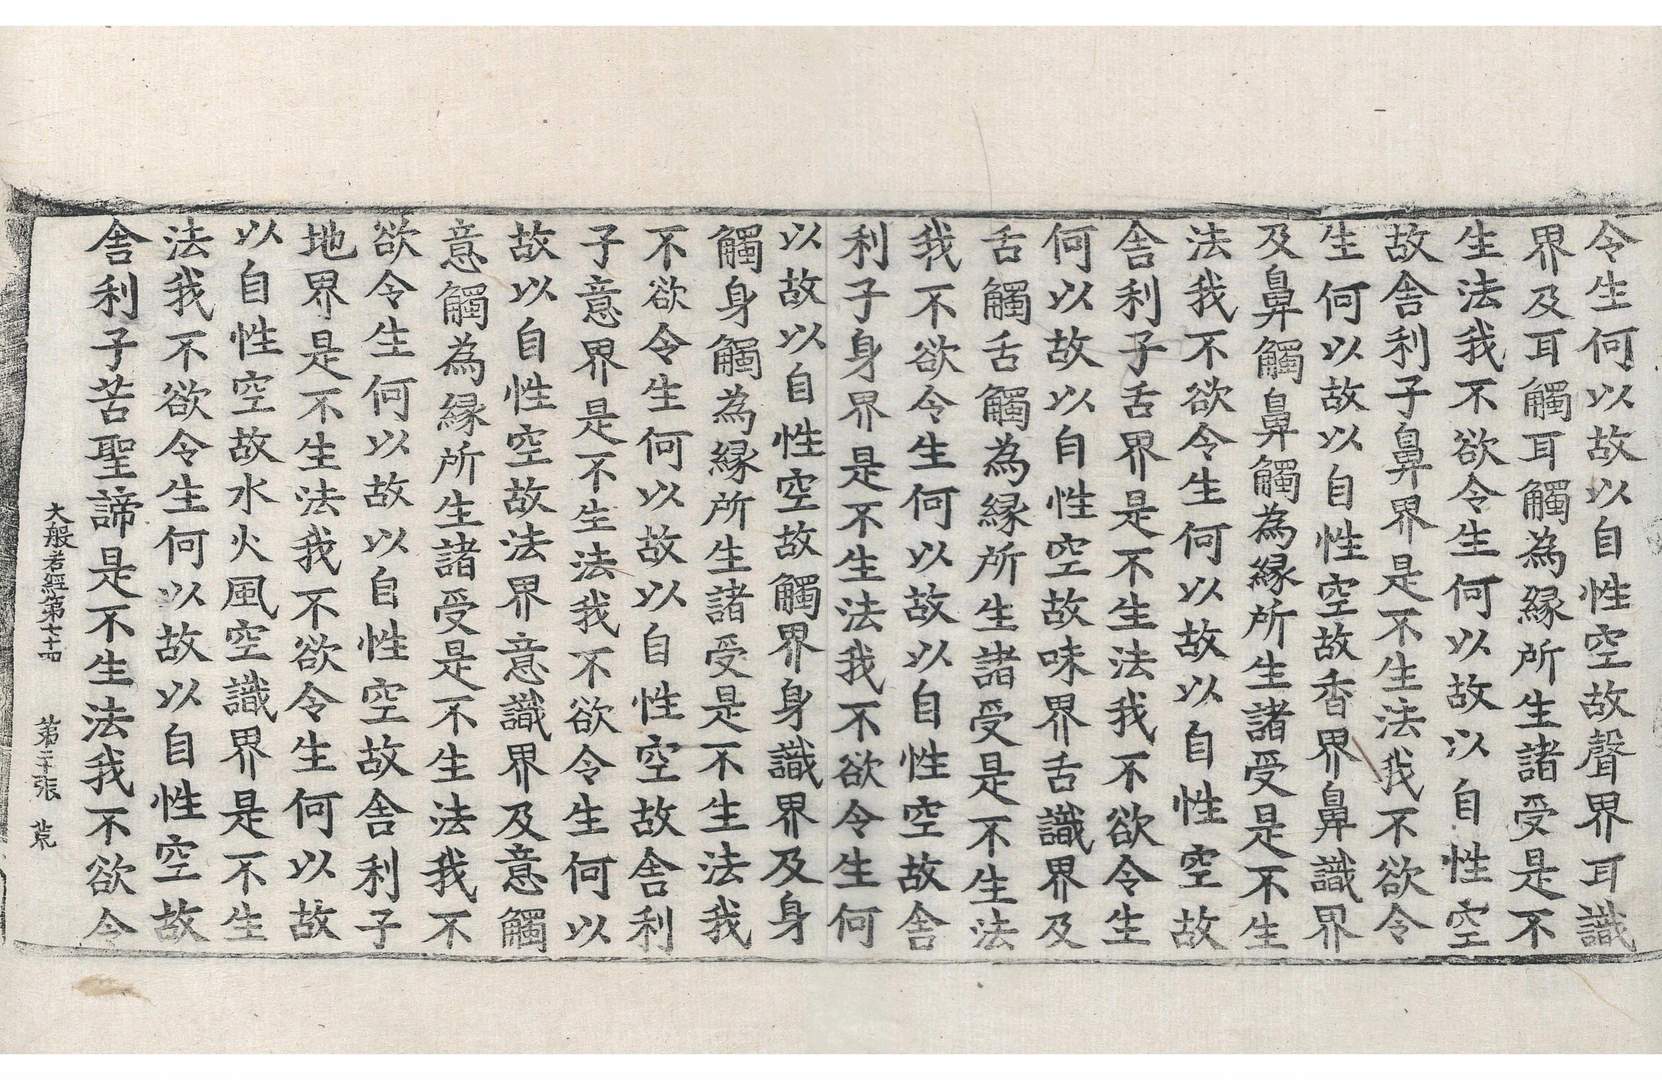 令生何以故以自性空故聲界耳識
界及耳觸耳觸為緣所生諸受是不
生法我不欲令生何以故以自性空
故舍利子鼻界是不生法我不欲令
生何以故以自性空故香界鼻識界
及鼻觸鼻觸為緣所生諸受是不生
法我不欲令生何以故以自性空故
舍利子舌界是不生法我不欲令生
何以故以自性空故味界舌識界及
舌觸舌觸為緣所生諸受是不生法
我不欲令生何以故以自性空故舍
利子身界是不生法我不欲令生何
以故以自性空故觸界身識界及身
觸身觸為緣所生諸受是不生法我
不欲令生何以故以自性空故舍利
子意界是不生法我不欲令生何以
故以自性空故法界意識界及意觸
意觸為緣所生諸受是不生法我不
欲令生何以故以自性空故舍利子
地界是不生法我不欲令生何以故
以自性空故水火風空識界是不生
法我不欲令生何以故以自性空故
舍利子苦聖諦是不生法我不欲令
大般若經第七十四 第二十張 荒